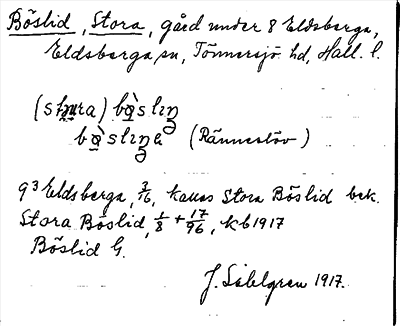 Böslid, Stora, gård under 8 Eldsberga,
Eldsberga sn, Tönnersjö hd, Hall. l.
(Rännestöv)
9³ Eldsberga, 3/16, kallas Stora Böslid bek.
Stora Böslid, 1/8 + 17/96, kb 1917
Böslid G.
J. Sahlgren 1917.